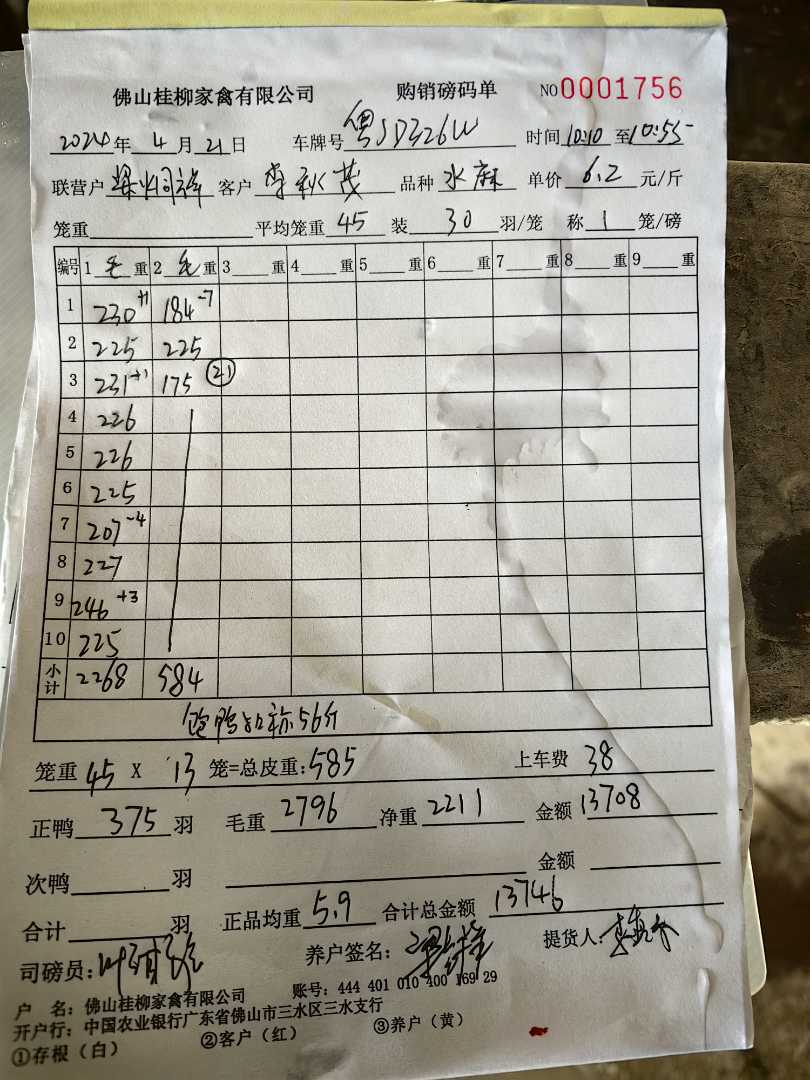 佛山桂柳家禽有限公司 购销磅码单 NO 0001756
2024年 4月 21日 车牌号 粤JD326W 时间 10:10 至 10:55
联营户 梁炳祥 客户 李秋茂 品种 水麻 单价 6.2 元/斤
笼重 平均笼重 45 装 30 羽/笼 称 1 笼/磅
编号 1 毛 重 2 毛 重 3 重 4 重 5 重 6 重 7 重 8 重 9 重
1 230 +1 184 -7
2 225 225
3 231 +1 175 (21)
4 226
5 226
6 225
7 207 -4
8 227
9 246 +3
10 225
小计 2268 584
鸭扣称56斤
笼重 45 X 13 笼=总皮重: 585 上车费 38
正鸭 375 羽 毛重 2796 净重 2211 金额 13708
次鸭 羽 金额
合计 羽 正品均重 5.9 合计总金额 13746
司磅员: 养户签名: 提货人:
户 名: 佛山桂柳家禽有限公司 账号: 444 401 010 400 169 29
开户行: 中国农业银行广东省佛山市三水区三水支行
①存根（白） ②客户（红） ③养户（黄）